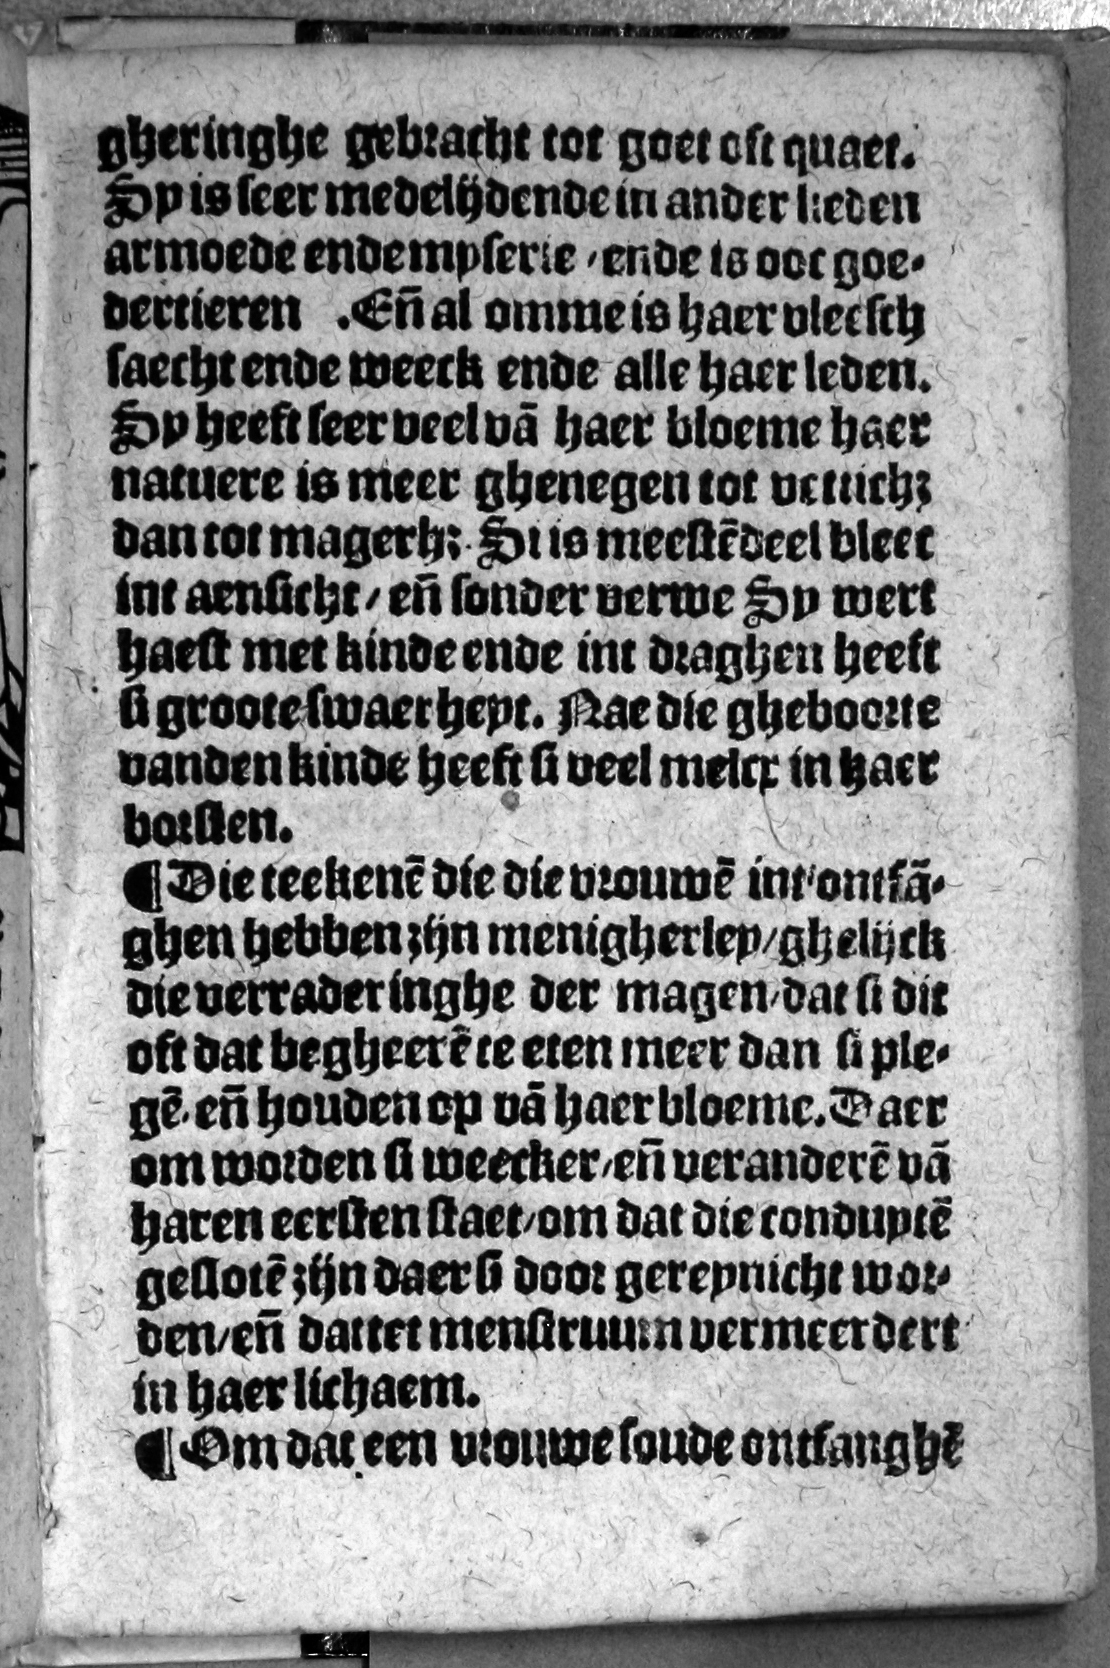 gheringhe gebracht tot goet oft quaet.
Sy is seer medelijdende in ander lieden
armoede ende myserie / ende is ooc goe-
dertieren . Eñ al omme is haer vleesch
saecht ende weeck ende alle haer leden.
Sy heeft seer veel vā haer bloeme haer
natuere is meer ghenegen tot vettichꝫ
dan tot magerhꝫ. Si is meestēdeel bleec
int aensicht / eñ sonder verwe Sy wert
haest met kinde ende int draghen heeft
si groote swaerheyt. Nae die gheboorte
vanden kinde heeft si veel melcx in haer
borsten.
¶ Die teekenē die die vrouwē int ontfā-
ghen hebben zijn menigherley / ghelijck
die verraderinghe der magen / dat si dit
oft dat begheerē te eten meer dan si ple-
gē. eñ houden op vā haer bloeme. Daer
om worden si weecker / eñ veranderē vā
haren eersten staet / om dat die conduytē
geslotē zijn daer si door gereynicht wor-
den / eñ dattet menstruum vermeerdert
in haer lichaem.
¶ Om dat een vrouwe soude ontfanghē